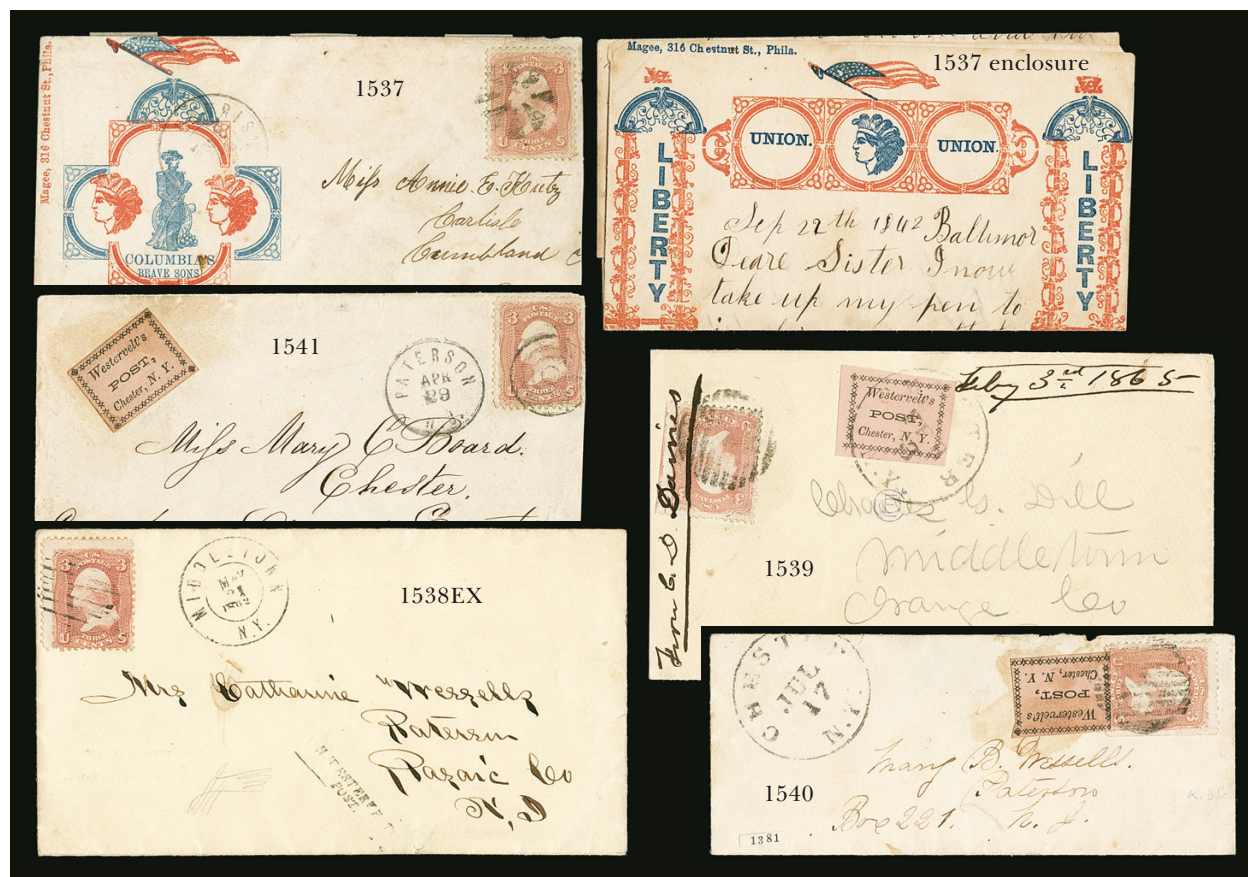 Magee, 316 Chestnut St., Phila.
1537
U.S. POSTAGE
U S
THREE CENTS
COLUMBIA'S
BRAVE SONS
Miss Annie E. Hutz
Carlisle
Cumbland
Magee, 316 Chestnut St., Phila.
1537 enclosure
UNION.
UNION.
LIBERTY
LIBERTY
Sep 22th 1862 Baltimor
Deare Sister I now
take up my pen to
1541
Westervelt's
POST,
Chester, N. Y.
PATERSON
APR
29
N.J.
3 3
Miss Mary C Board.
Chester.
Feby 3rd 1865
Westervelt's
POST,
Chester, N. Y.
From C. D. Davies
Charles G. Dill
Middletown
Orange Co
1539
3 U.S. 3
U S
THREE CENTS
MIDDLETOWN
MAY
21
N.Y.
1538EX
Mrs Catharine Wessells
Paterson
Pasaic Co
N, J
WESTERVELT'S
POST.
CHESTER
JUL
17
N.Y.
Westervelt's
POST,
Chester, N. Y.
Mary B. Wessells.
Paterson
Box 221. N. J.
1540
1381